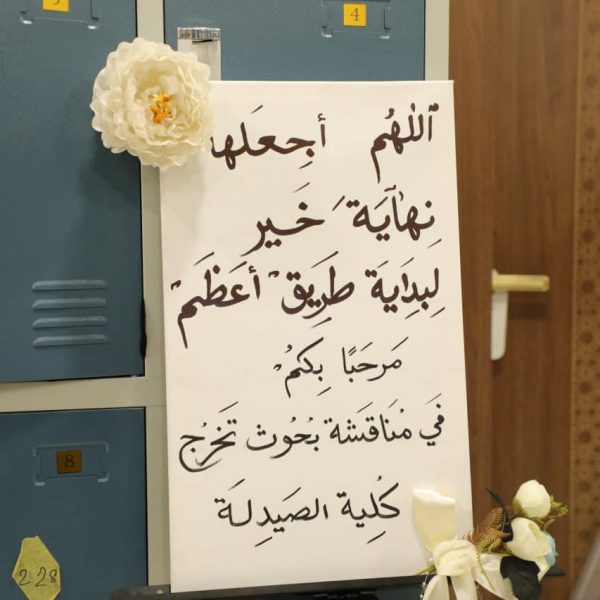 4
اللهُم أجِعَلها
نِهايَة خَير
لِبِدَايَة طَرِيق أعَظَم
مَرحَبًا بِكمُ
فَي مُنَاقَشَة بُحُوث تَخَرُج
كُلِية الصَيدِلَة
8
228